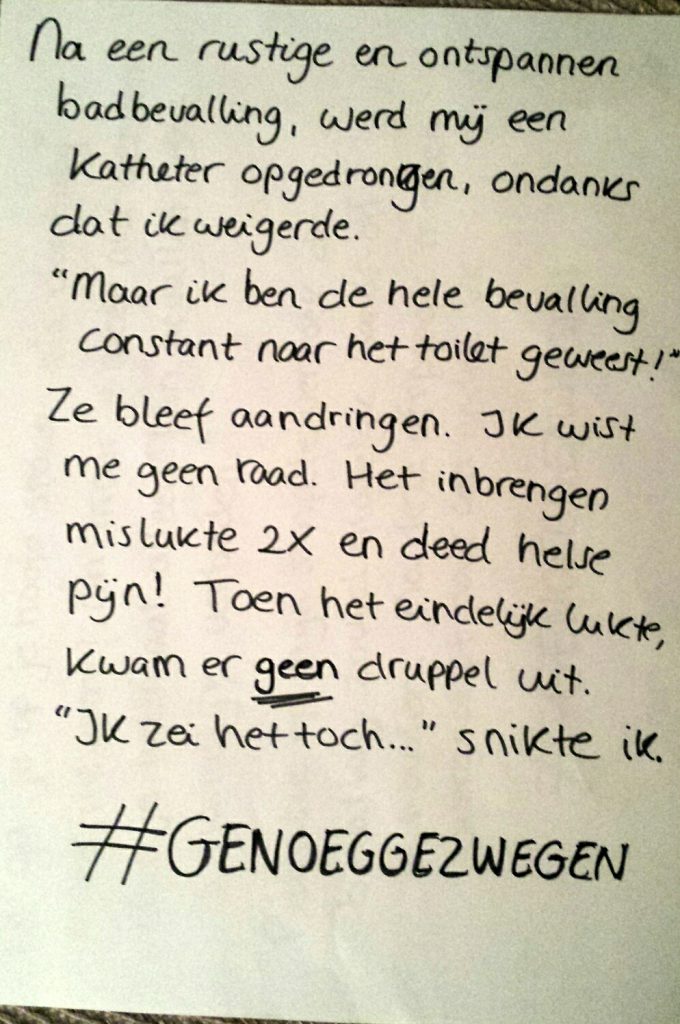 Na een rustige en ontspannen
badbevalling, werd mij een
katheter opgedrongen, ondanks
dat ik weigerde.
"Maar ik ben de hele bevalling
constant naar het toilet geweest!"
Ze bleef aandringen. Ik wist
me geen raad. Het inbrengen
mislukte 2x en deed helse
pijn! Toen het eindelijk lukte,
kwam er geen druppel uit.
"Ik zei het toch..." snikte ik.
#GENOEGGEZWEGEN